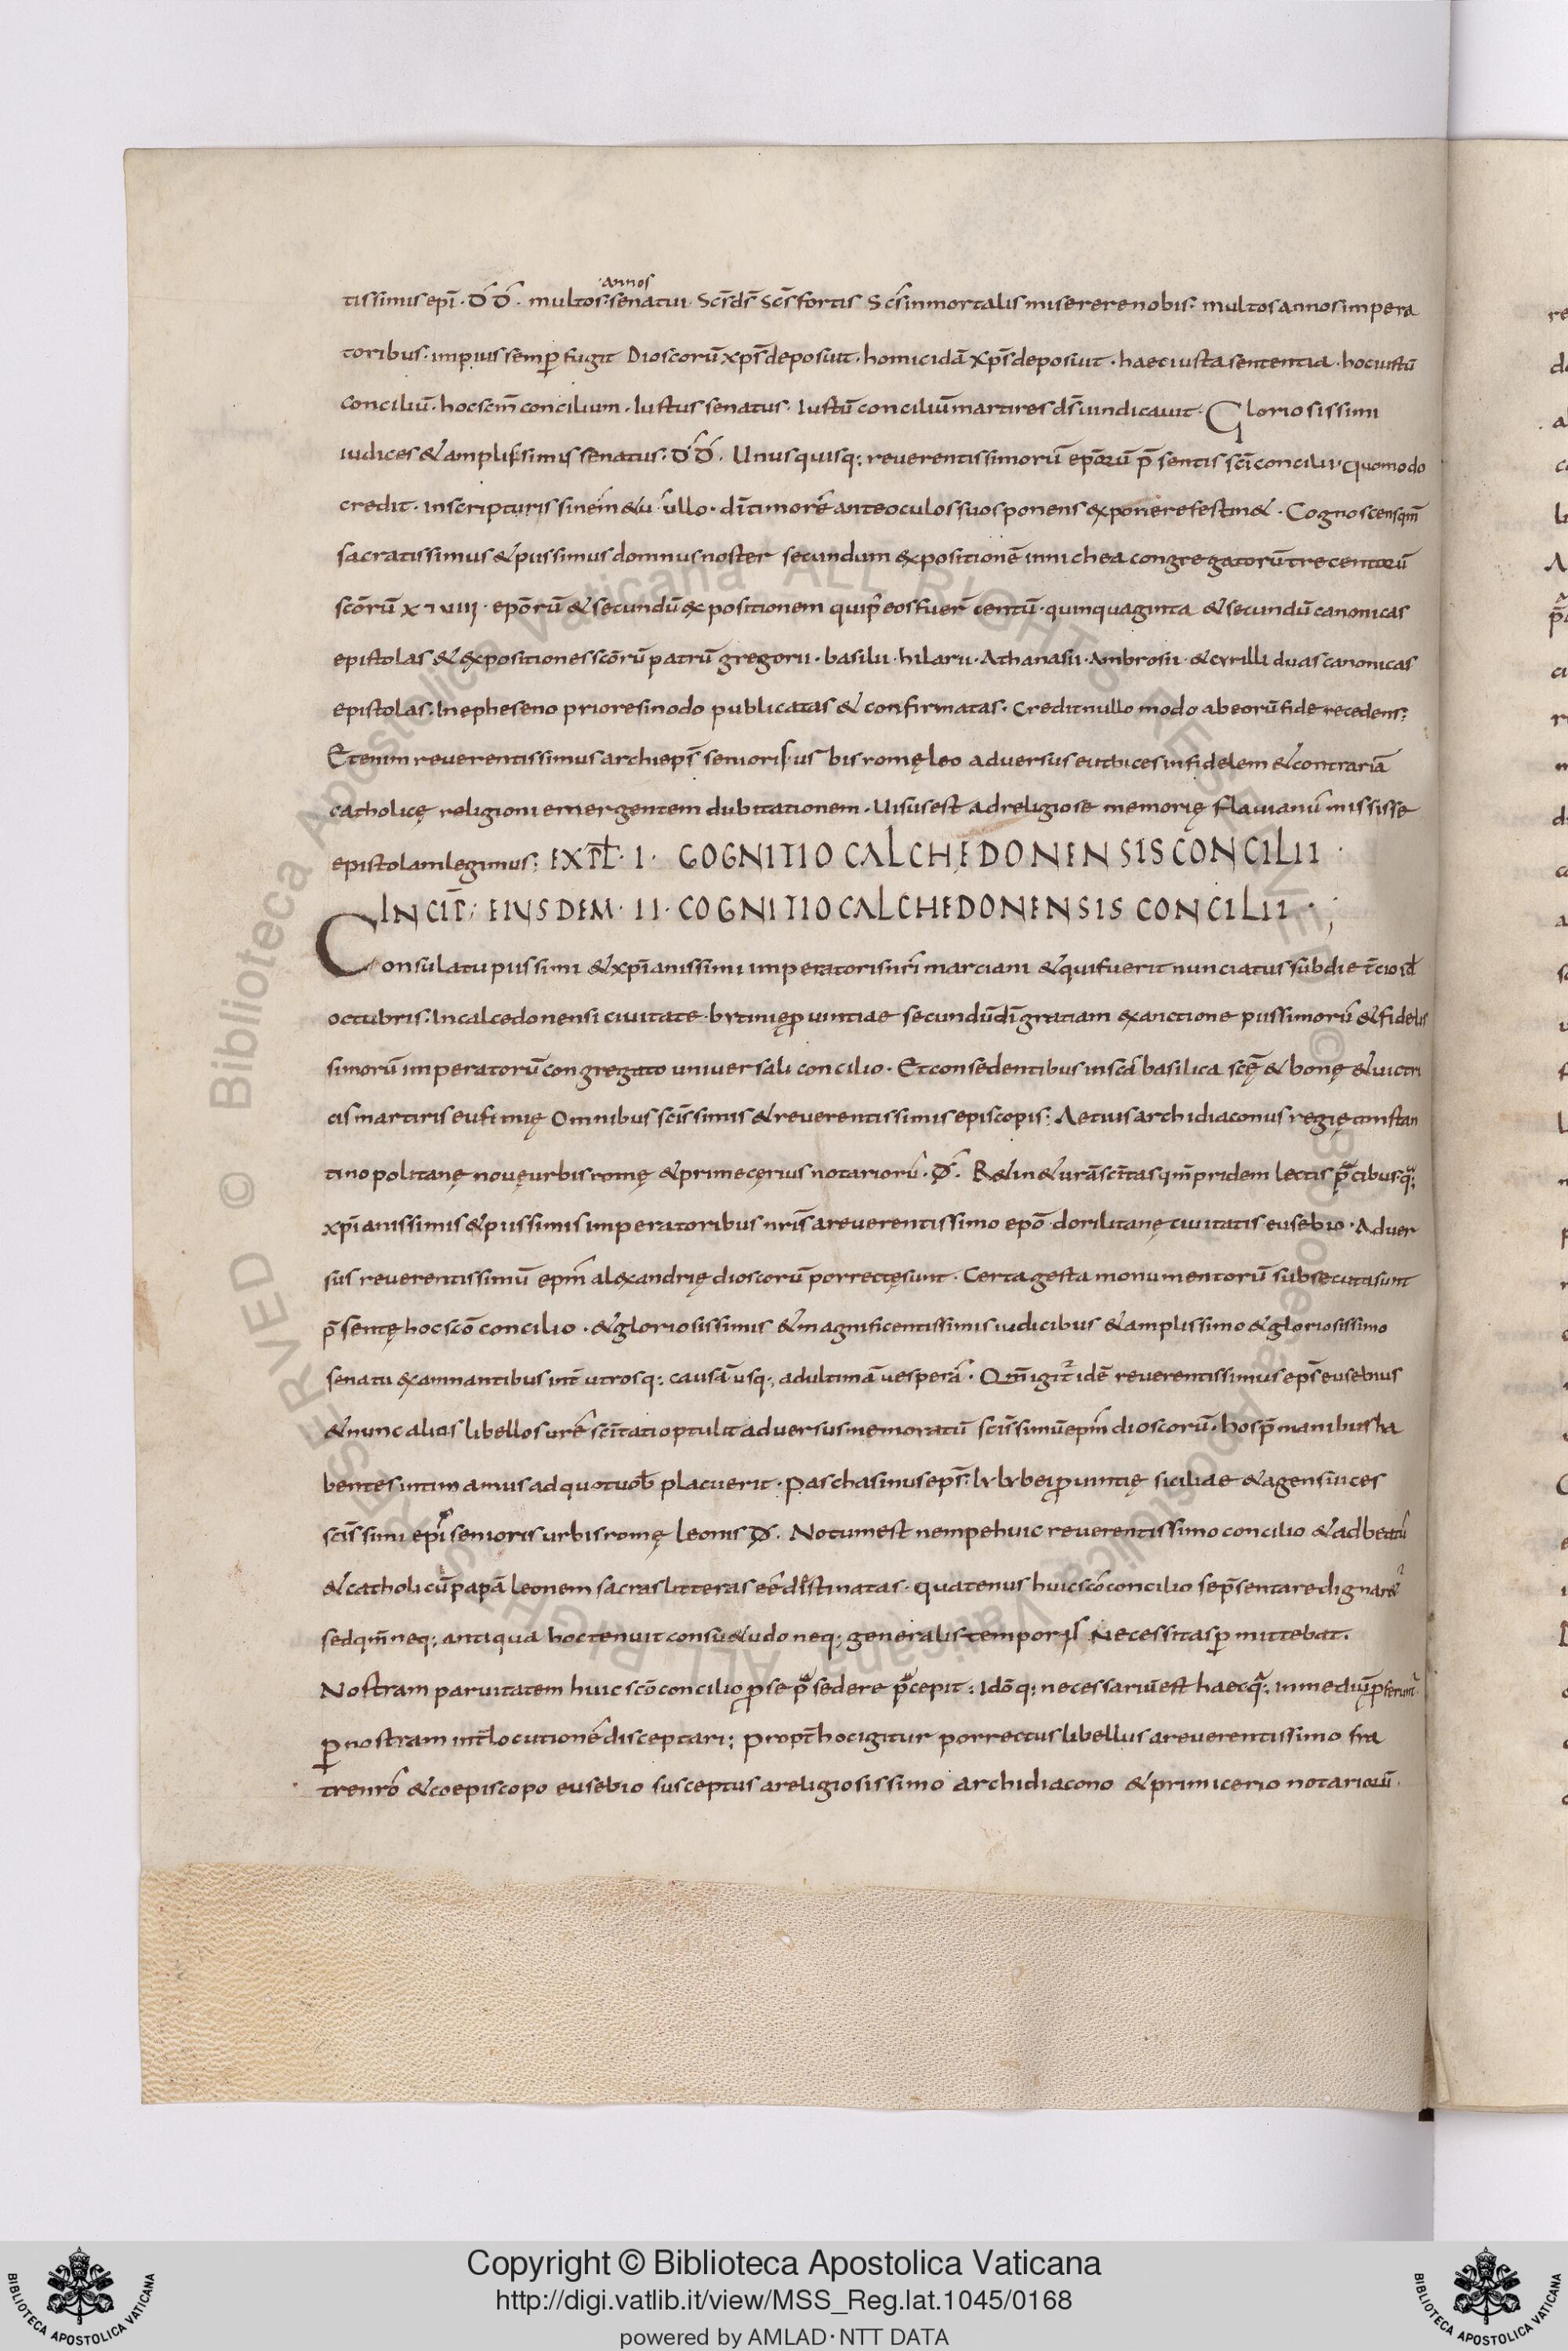 ·annos
tissimus epī · D̄ D̄ · multos · senatui · Scs̄ ds̄ Scs̄ fortis Scs̄ inmortalis miserere nobis · multos annos impera
toribus · impius semp̄ fugit Dioscorū xps̄ deposuit · homicidā xps̄ deposuit · haec iusta sententia · hoc iustū
conciliū · hoc scm̄ concilium · Iustus senatus · Iustū conciliū martires ds̄ uindicauit · Gloriosissimi
iudices & amplissimus senatus · D̄ D̄ · Unusquisq; reverentissimorū epōrū p̄sentis scī concilii quomodo
credit · in scripturis sine m̄&u ullo · dī timorē ante oculos suos ponens exponere festin& · Cognoscens qm̄
sacratissimus & piissimus domnus noster secundum expositionē in nichea congregatorū trecentorū
scōrū x 7 viii · epōrū & secundū expositionem qui p̄ eos fuer̄ centū · quinquaginta & secundū canonicas
epistolas & expositiones scōrū patrū gregorii · basilii · hilarii · Athanasii · Ambrosii · & cyrilli duas canonicas
epistolas · In epheseno priore sinodo publicatas & confirmatas · Credit nullo modo ab eorū fide recedens;
Etenim reverentissimus archieps̄ senioris us bis romę leo adversus eutuices infidelem & contrariā
catholicę religioni emergentem dubitationem · Uisus est ad religiose memorię flavianū misisse
epistolam legimus; EXPL̄ · I · COGNITIO CALCHEDONENSIS CONCILII ·
INCIP̄; EIUSDEM · II · COGNITIO CALCHEDONENSIS CONCILII ·;
Consulatu piissimi & xp̄ianissimi imperatoris nr̄i marciani & qui fuerit nunciatus sub die t̄cio id̄
octubris · In calcedonensi civitate · bytinię p̄uintiae secundū dī gratiam ex sanctione piissimorū & fidelis
simorū imperatorū congregato universali concilio · Et consedentibus in scā basilica scę̄ & bonę & uictri
cis martiris eufimię Omnibus scis̄simis & reverentissimis episcopis; Aetius archidiaconus regię constan
tinopolitanę nouę urbis romę & primecerius notariorū · D̄ · R&in& ur̄a sc̄itas qm̄ pridem lectis p̄cibus q;
xp̄ianissimis & piissimis imperatoribus nr̄is a reverentissimo epō dorilitanę civitatis eusebio · Adver
sus reverentissimū epm̄ alexandrię dioscorū porrectę sunt · Certa gesta monumentorū subsecuta sunt
p̄sentę hoc scō concilio · & gloriosissimis & magnificentissimis iudicibus & amplissimo & gloriosissimo
senatu examinantibus int̄ utrosq; causā usq; ad ultimā vesperā · Qm̄ igit̄ idē reverentissimus eps̄ eusebius
& nunc alios libellos ur̄e sc̄itati optulit adversus memoratū scis̄simū epm̄ dioscorū · hos p̄ manibus ha
bentes intimamus ad quot uob̄ placuerit · Paschasinus eps̄ lylybei p̄uintię siciliae & agens uices
scis̄simi epī senioris urbis romę leonis D̄ · Notum est nempe huic reverentissimo concilio & ad beatū
& catholicū papā leonem sacras litteras eē distinatas · quatenus huic scō concilio se p̄sentare dignar&̄
sed qm̄ neq; antiqua hoc tenuit consu&udo neq; generalis temporis Necessitas p̄mittebat.
Nostram parvitatem huic scō concilio p̄ se p̄sedere p̄cepit: Idō q; necessariū est haec q; in mediū p̄ferunt̄
p̄ nostram int̄locutionē disceptari; Propt̄ hoc igitur porrectus libellus a reverentissimo fra
tre nr̄o & coepiscopo eusebio susceptus a religiosissimo archidiacono & primicerio notariorū ·
Copyright © Biblioteca Apostolica Vaticana
http://digi.vatlib.it/view/MSS_Reg.lat.1045/0168
powered by AMLAD · NTT DATA
BIBLIOTECA APOSTOLICA VATICANA
BIBLIOTECA APOSTOLICA VATICANA